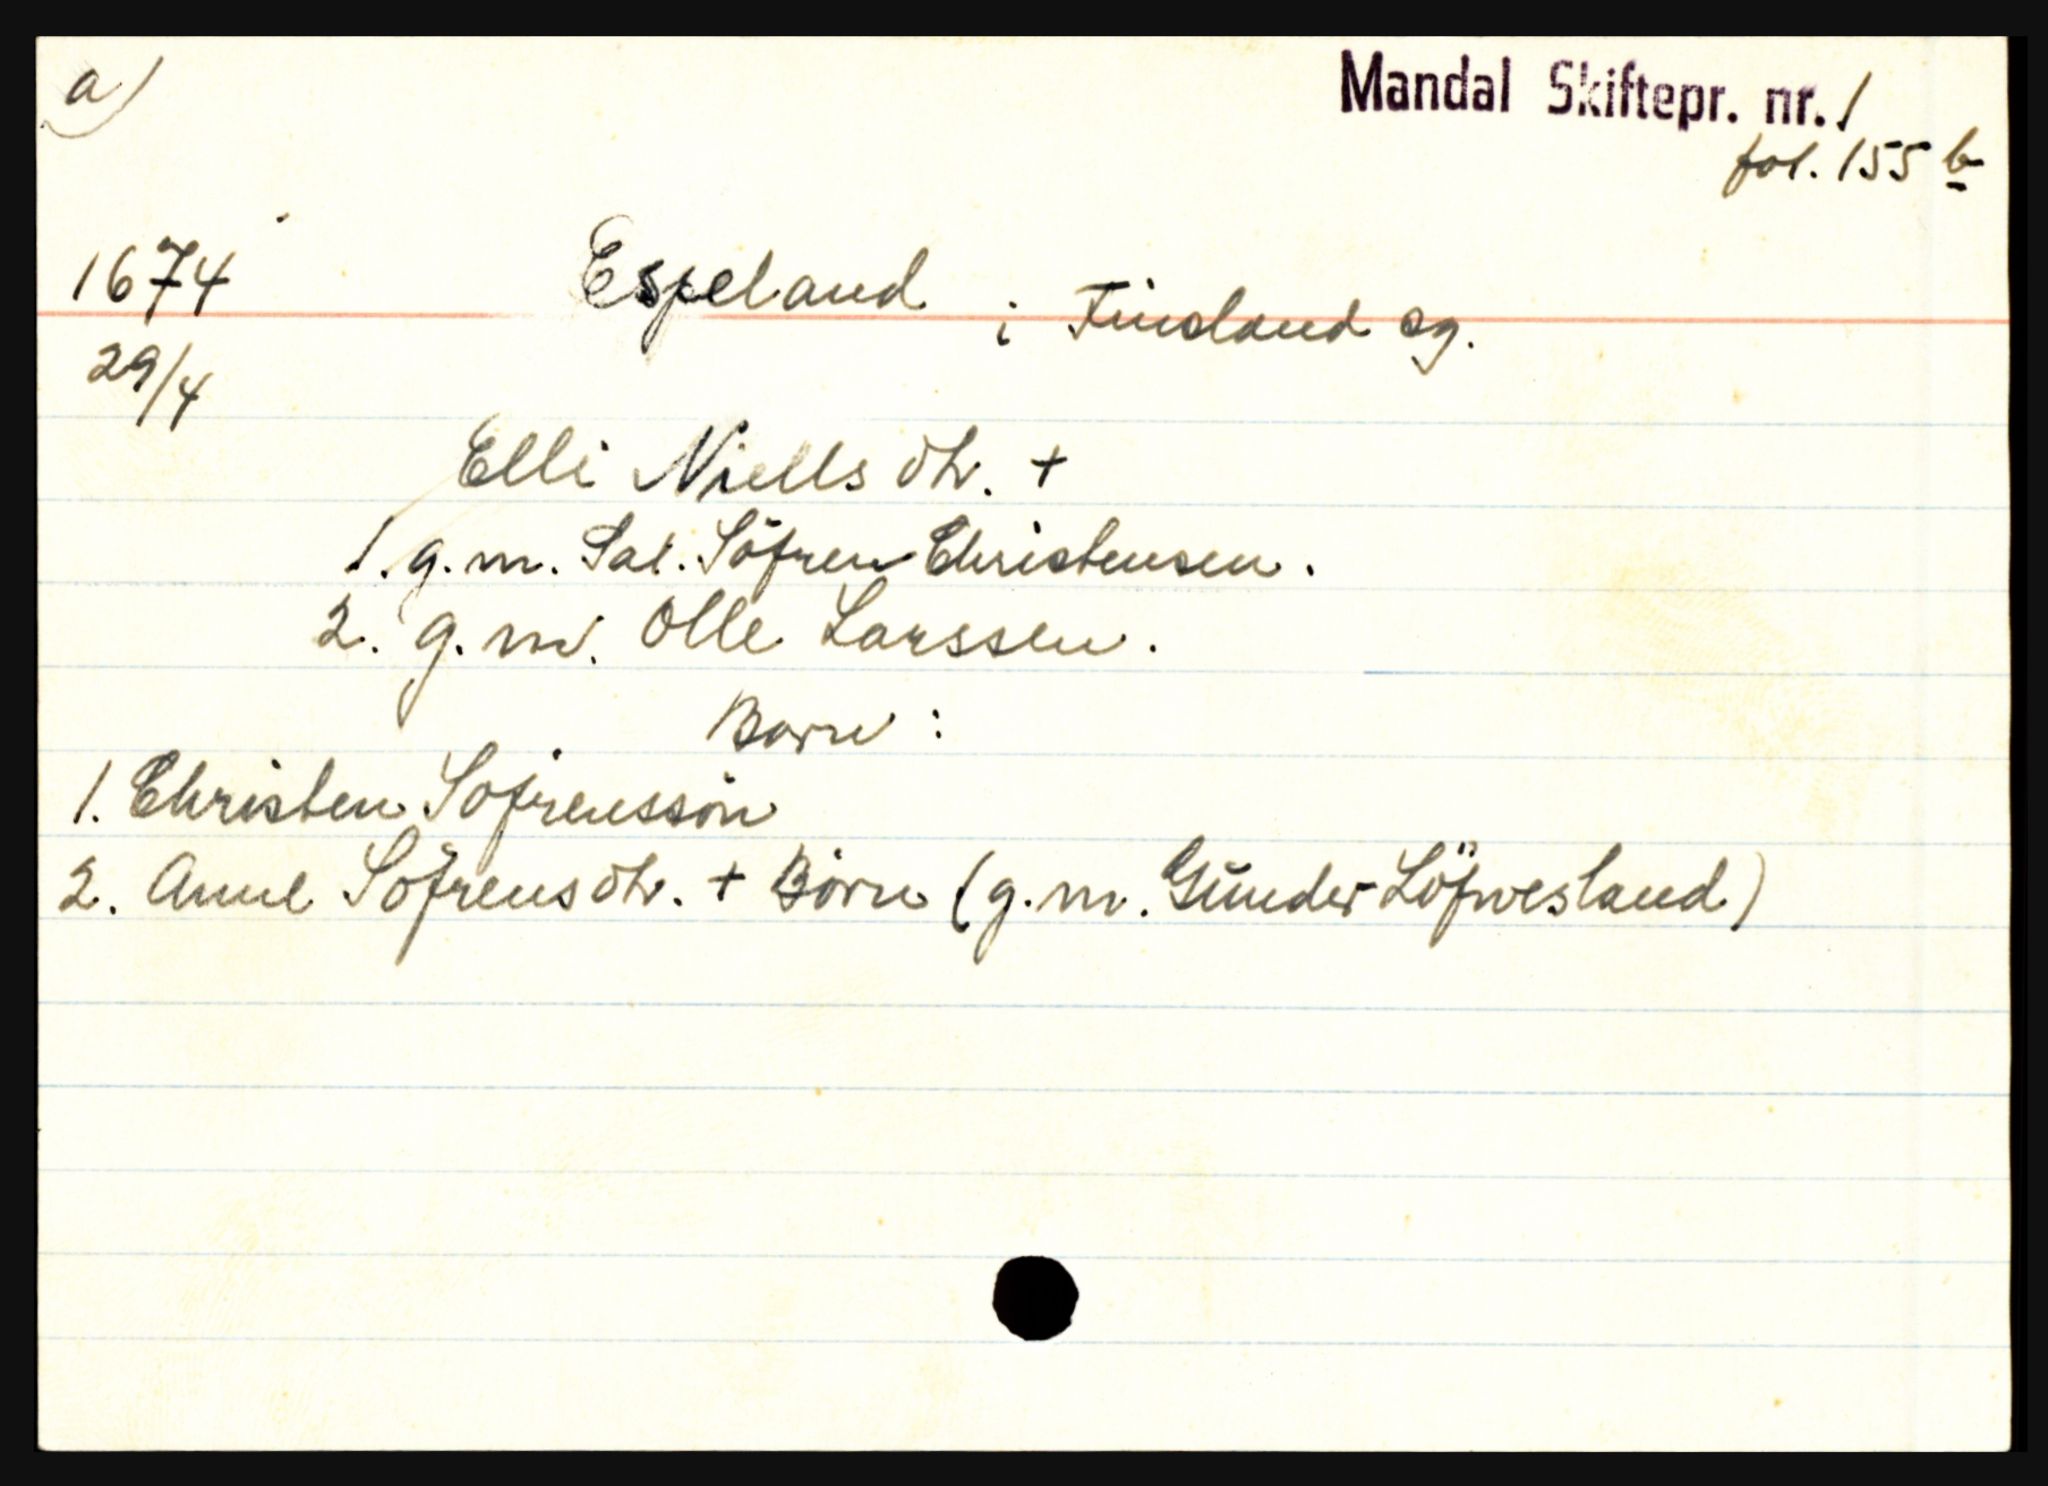 a)
Mandal Skiftepr. nr. 1
fol. 155 b
1674
Espeland i Finsland sg.
29/4
Elli Niells dtr. +
1. g.m. Sal. Söfren Christensen.
2. g.m. Olle Larssen.
Barn :
1. Christen Sofrenssön
2. Anne Söfrens dtr. + Börn (g.m. Gunder Löfwesland)